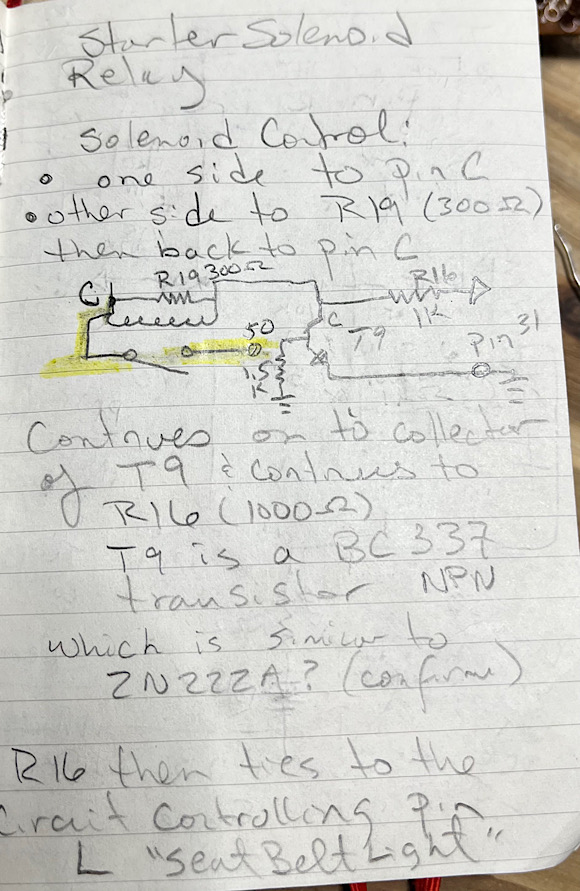 Starter Solenoid
Relay
Solenoid Control:
• one side to pin C
• other side to R19 (300Ω)
then back to pin C
R19 300Ω
R16
C
1K
50
C
T9
Pin 31
1.5
K
Continues on to collector
of T9 & continues to
R16 (1000Ω)
T9 is a BC337
transistor NPN
which is similar to
2N222A? (confirm)
R16 then ties to the
circuit controlling pin
L "Seat Belt Light"